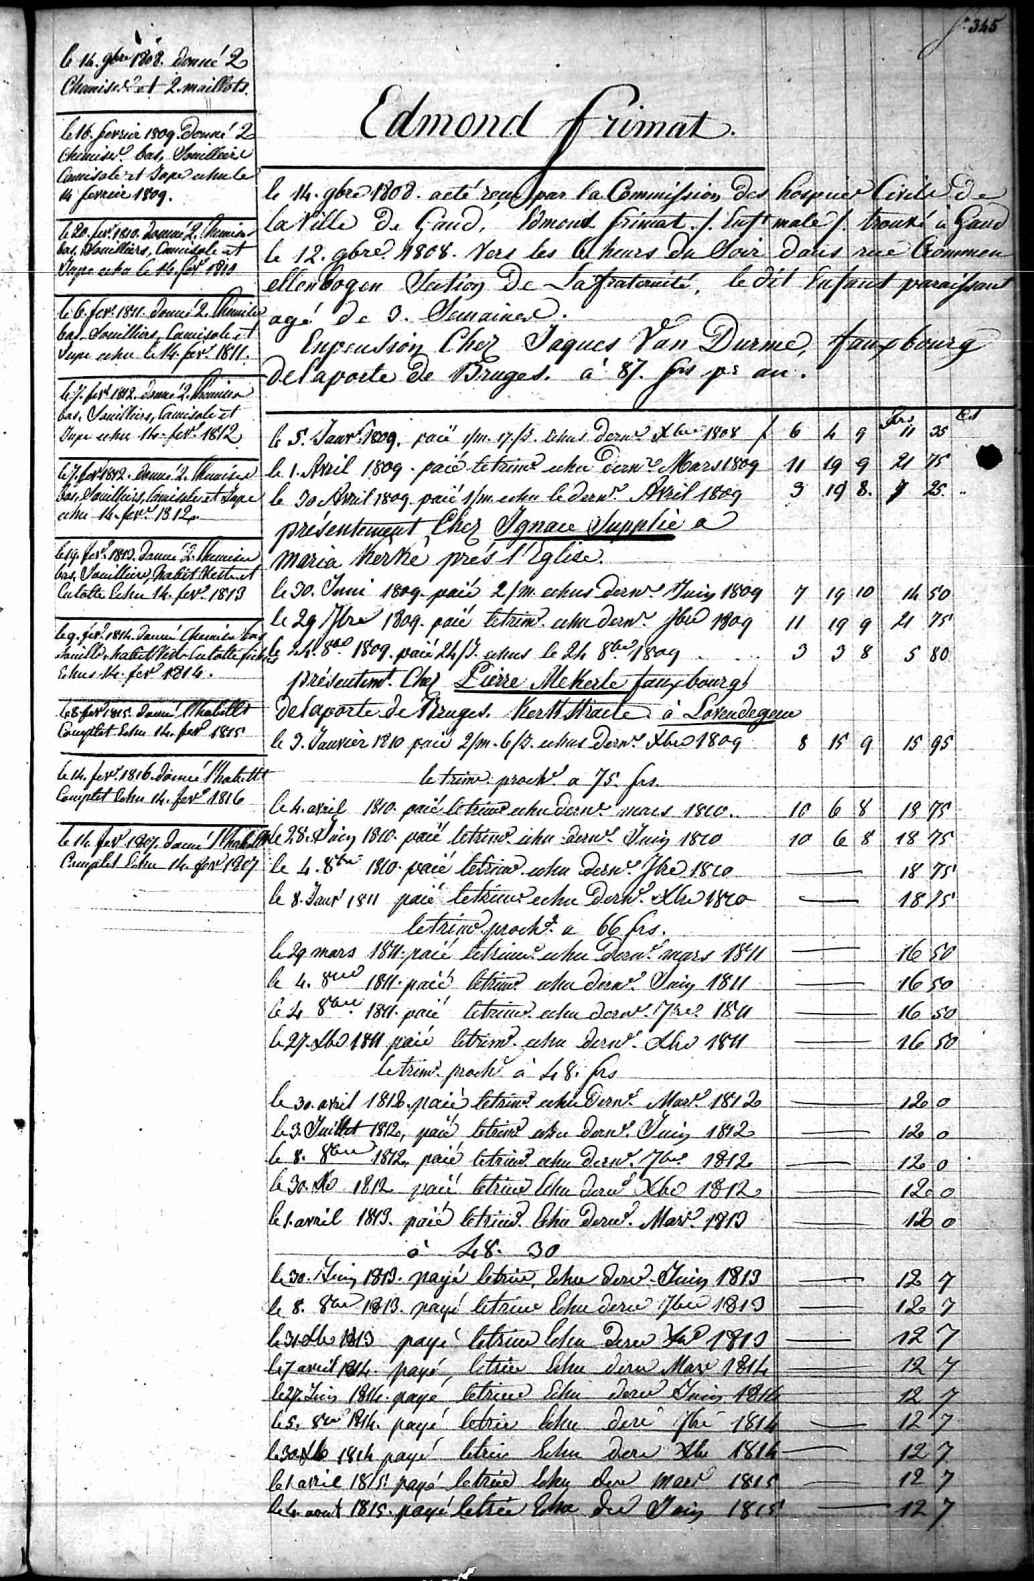 f° 345
le 14. 9bre 1808. donné 2
Chemises et 2 maillots.
le 16. fevrier 1809. Donné 2
Chemises bas, Souilliers
Camisole et Jupe echu le
14 fevrier 1809.
le 20. fevr. 1810. donné 2 Chemises
bas, Souilliers, Camisole et
Jupe echu le 14. fevr 1810
le 6. fevr. 1811. donné 2. Chemises
bas, Souilliers, Camisole et
Jupe echu le 14. fevr. 1811.
le 7. fevr. 1812. donné 2. Chemises
bas, Souilliers, Camisole et
Jupe echu 14. fevr. 1812
le 7. fevr 1812. donné 2. Chemises
bas, Souilliers, Camisole et Jupe
echu 14. fevr. 1812.
le 19. fevr. 1813. donné 2. Chemises
bas, Souilliers, habit Veste et
Culotte Echu 14. fevr. 1813
le 9. fevr. 1814. donné Chemises bas
Souilliers habit Veste Culotte
Echus 14. fevr 1814.
le 8. fevr 1815. donné l'habillt
Complet Echu 14. fevr 1815
le 14. fevr. 1816. donné l'habillt
Complet Echu 14. fevr 1816
le 14. fevr 1817. donné l'habillt
Complet Echu 14. fevr 1817
Edmond frimat.
le 14. 9bre 1808. a été reçu par la Commission des hospices Civils de
la Ville de Gand, Edmond frimat. /. Enft male /. trouvé à Gand
le 12. 9bre. 1808. vers les 6 heurs du Soir dans rue Crommen
ellenbogen Section De La fraternité, le dit Enfant paraissant
agé de 3. Semaines.
En pension Chez Jaques Van Durme, fauxbourg
de la porte de Bruges. à 87. frs pr an.
frs. Cs
le 5. Janvr. 1809. paié 1/m. 17/j. echus dernr. Xbre 1808 f 6 4 9 11 35
le 1. Avril 1809. paié le trimr. echu dernr. Mars 1809 11 19 9 21 75
le 30 Avril 1809. paié 1/m echu le dernr. Avril 1809 3 19 8. 7 25.
présentement Chez Ignace Supplie a
maria Kerke près l'Eglise.
le 30. Juni 1809. paié 2/m. echus dernr. Juin 1809 7 19 10 14 50
le 29 7bre 1809. paié le trimr. echu dernr. 7bre 1809 11 19 9 21 75
le 24. 8bre 1809. paié 24/j. echus le 24 8bre 1809 3 3 8 5 80
présentemt. Chez Pierre Mekerle fauxbourg
de la porte de Bruges. Kerkstraete à Lovendegem
le 3. Janvier 1810 paié 2/m. 6/j. echus dernr. Xbre 1809 8 15 9 15 95
le trimr. prochr. a 75. frs.
le 4. avril 1810. paié le trimr echu dernr. mars 1810. 10 6 8 18 75
le 28. Juin 1810. paié le trimr. echu dernr. Juin 1810 10 6 8 18 75
le 4. 8bre 1810. paié le trimr. echu dernr. 7bre 1810 18 75
le 8. Janvr 1811 paié le trimr echu dernr. Xbre 1810 18 75
le trimr. prochr. a 66 frs.
le 29 mars 1811. paié le trimr. echu dernr. mars 1811 16 50
le 4. 8bre 1811. paié le trimr. echu dernr. Juin 1811 16 50
le 4 8bre. 1811. paié le trimr. echu dernr. 7bre. 1811 16 50
le 27. Xbre 1811 paié le trimr. echu dernr. Xbre 1811 16 50
le trimr. prochr. à 48. frs
le 30. avril 1812. paié le trimr. echu dernr. Mars 1812 12 0
le 3 Juillet 1812, paié le trimr echu dernr. Juin 1812 12 0
le 8. 8bre 1812, paié le trimr. echu dernr. 7bre. 1812 12 0
le 30. Xbre 1812 paié le trimr Echu dernr. Xbre 1812 12 0
le 1. avril 1813. paié le trimr. Echu dernr. Mars 1813 12 0
à 48. 30
le 30. Juin 1813. payé le trim. Echu dernr. Juin 1813 12 7
le 8. 8bre 1813. payé le trim Echu dernr 7bre 1813 12 7
le 31 Xbre 1813 payé le trim Echu dernr Xbre 1813 12 7
le 7 avril 1814. payé, le trim Echu dernr Mars 1814 12 7
le 27. Juin 1814. payé le trim Echu dernr Juin 1814 12 7
le 5. 8bre 1814. payé le trim Echu dernr 7bre 1814 12 7
le 30 Xbre 1814 payé le trim Echu dernr Xbre 1814 12 7
le 1 avril 1815. payé le trim Echu dernr mars 1815 12 7
le 4. aout 1815. payé le trim Echu dernr Juin 1815 12 7